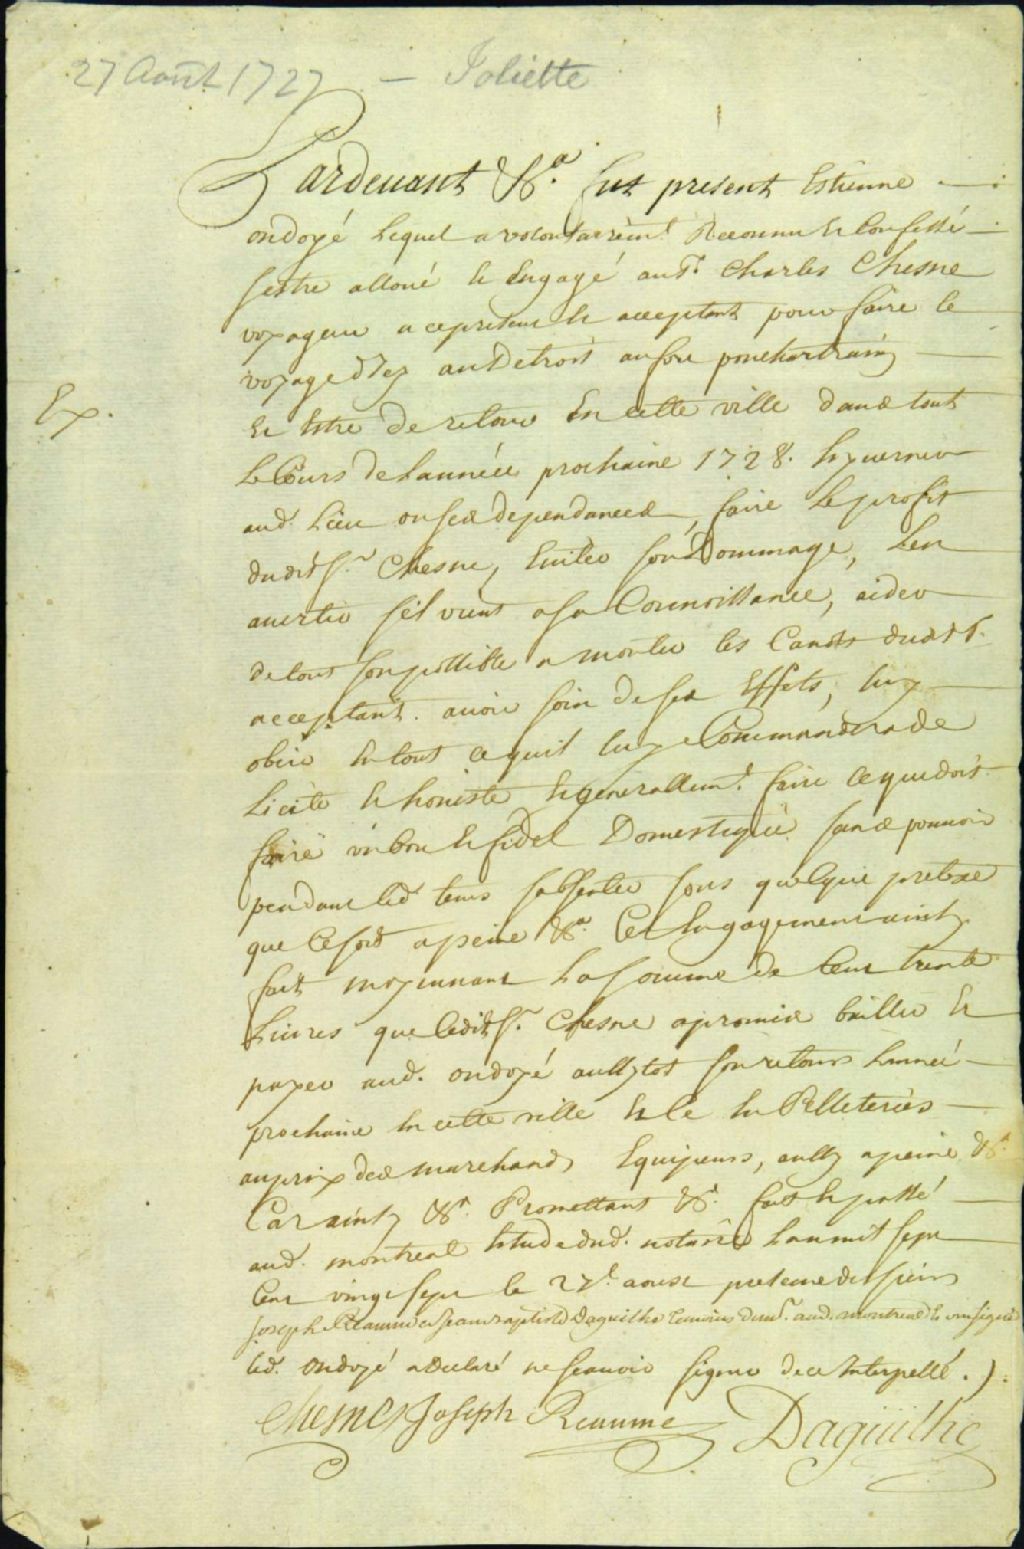 27 Août 1727 — Joliette
Pardevant &a. fut present Estienne
ondoyé lequel a volontairemt. Reconnu et Confessé
sestre alloué et Engagé au sr. Charles Chesne
voyageur a ce present et acceptant pour faire le
voyage dicy au Detroit au fort ponchartrain
Ex.
et Estre de retour En cette ville dans tout
Le Cours de Lannée prochaine 1728. hyverner
aud. Lieu ou ses dependances, faire Le profit
dudit Sr. Chesne, Eviter son Dommage, Len
avertir sil vient a sa Connoissance, aider
de tout son possible a monter les Canots dudit Sr.
acceptant. avoir soin de ses Effets, luy
obeir en tout ce quil luy Commandera de
Licite et honeste et generallemt. faire ce que doit
faire un bon et fidel Domestique sans pouvoir
pendant led. tems sabsenter sous quelque pretexe
que ce soit a peine &a. Cet Engagement ainsy
fait moyennant La somme de Cent trente
Livres que ledit Sr. Chesne a promis bailler et
payer aud. ondoyé aussytot son retour Lannée
prochaine en cette ville et ce en Pelleteries
au prix des marchands Equipeurs, aussy a peine &a.
Car ainsy &a. Promettant &a. fait et passé
aud. montreal Etude dud. notaire Lan mil sept
Cent vingt sept le 27e. aoust presence des sieurs
Joseph Reaume et Jean baptiste Daguilhe temoins demt. aud. montreal et ont signé
led. ondoyé a declaré ne scavoir signer de ce Interpellé.
Chesne Joseph Reaume Daguilhe